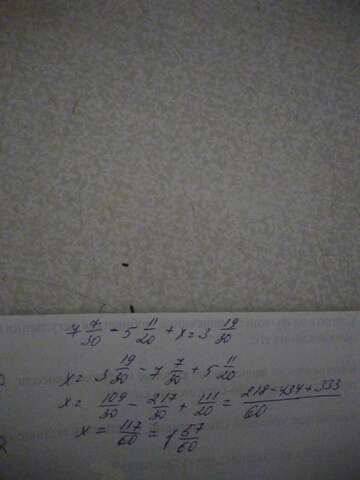 7 7/30 - 5 11/20 + x = 3 19/30
x = 3 19/30 - 7 7/30 + 5 11/20
x = 109/30 - 217/30 + 111/20 = 218-434+333/60
x = 117/60 = 1 57/60